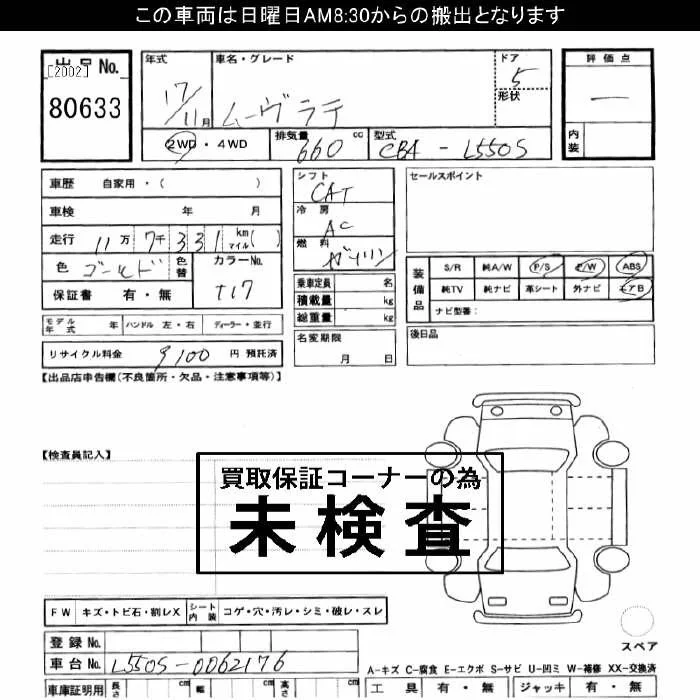 この車両は日曜日AM8:30からの搬出となります
出品No.
[2002]
80633
年式
17/11月
車名・グレード
ムーヴラテ
ドア
5
形状
評価点
―
内装
2WD・4WD
排気量
660 cc
型式
CBA-L550S
車歴 自家用・( )
車検 年 月
走行 11万7千331 km マイル( )
色 ゴールド 色替
カラーNo.
T17
保証書 有・無
シフト
CAT
冷房
AC
燃料
ガソリン
乗車定員 名
積載量 kg
総重量 kg
セールスポイント
装備品
S/R 純A/W P/S P/W ABS
純TV 純ナビ 革シート 外ナビ エアB
ナビ型番:
モデル年式 年 ハンドル 左・右 ディーラー・並行
リサイクル料金 9100 円 預託済
名変期限
月 日
後日品
【出品店申告欄(不良箇所・欠品・注意事項等)】
【検査員記入】
買取保証コーナーの為
未検査
FW キズ・トビ石・割レX シート内装 コゲ・穴・汚レ・シミ・破レ・スレ
スペア
登録No.
車台No. L550S-0062176
A-キズ C-腐食 E-エクボ S-サビ U-凹ミ W-補修 XX-交換済
車庫証明用 長さ cm 幅 cm 高さ cm
工具 有・無 ジャッキ 有・無